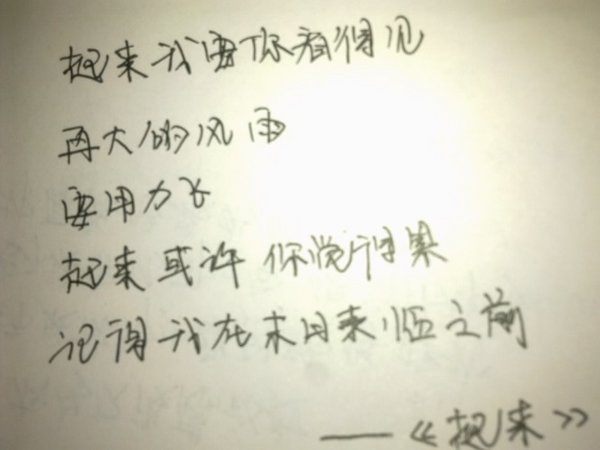 起来我要你看得见
再大的风雨
要用力飞
起来或许你觉得累
记得我在末日来临之前
——《起来》